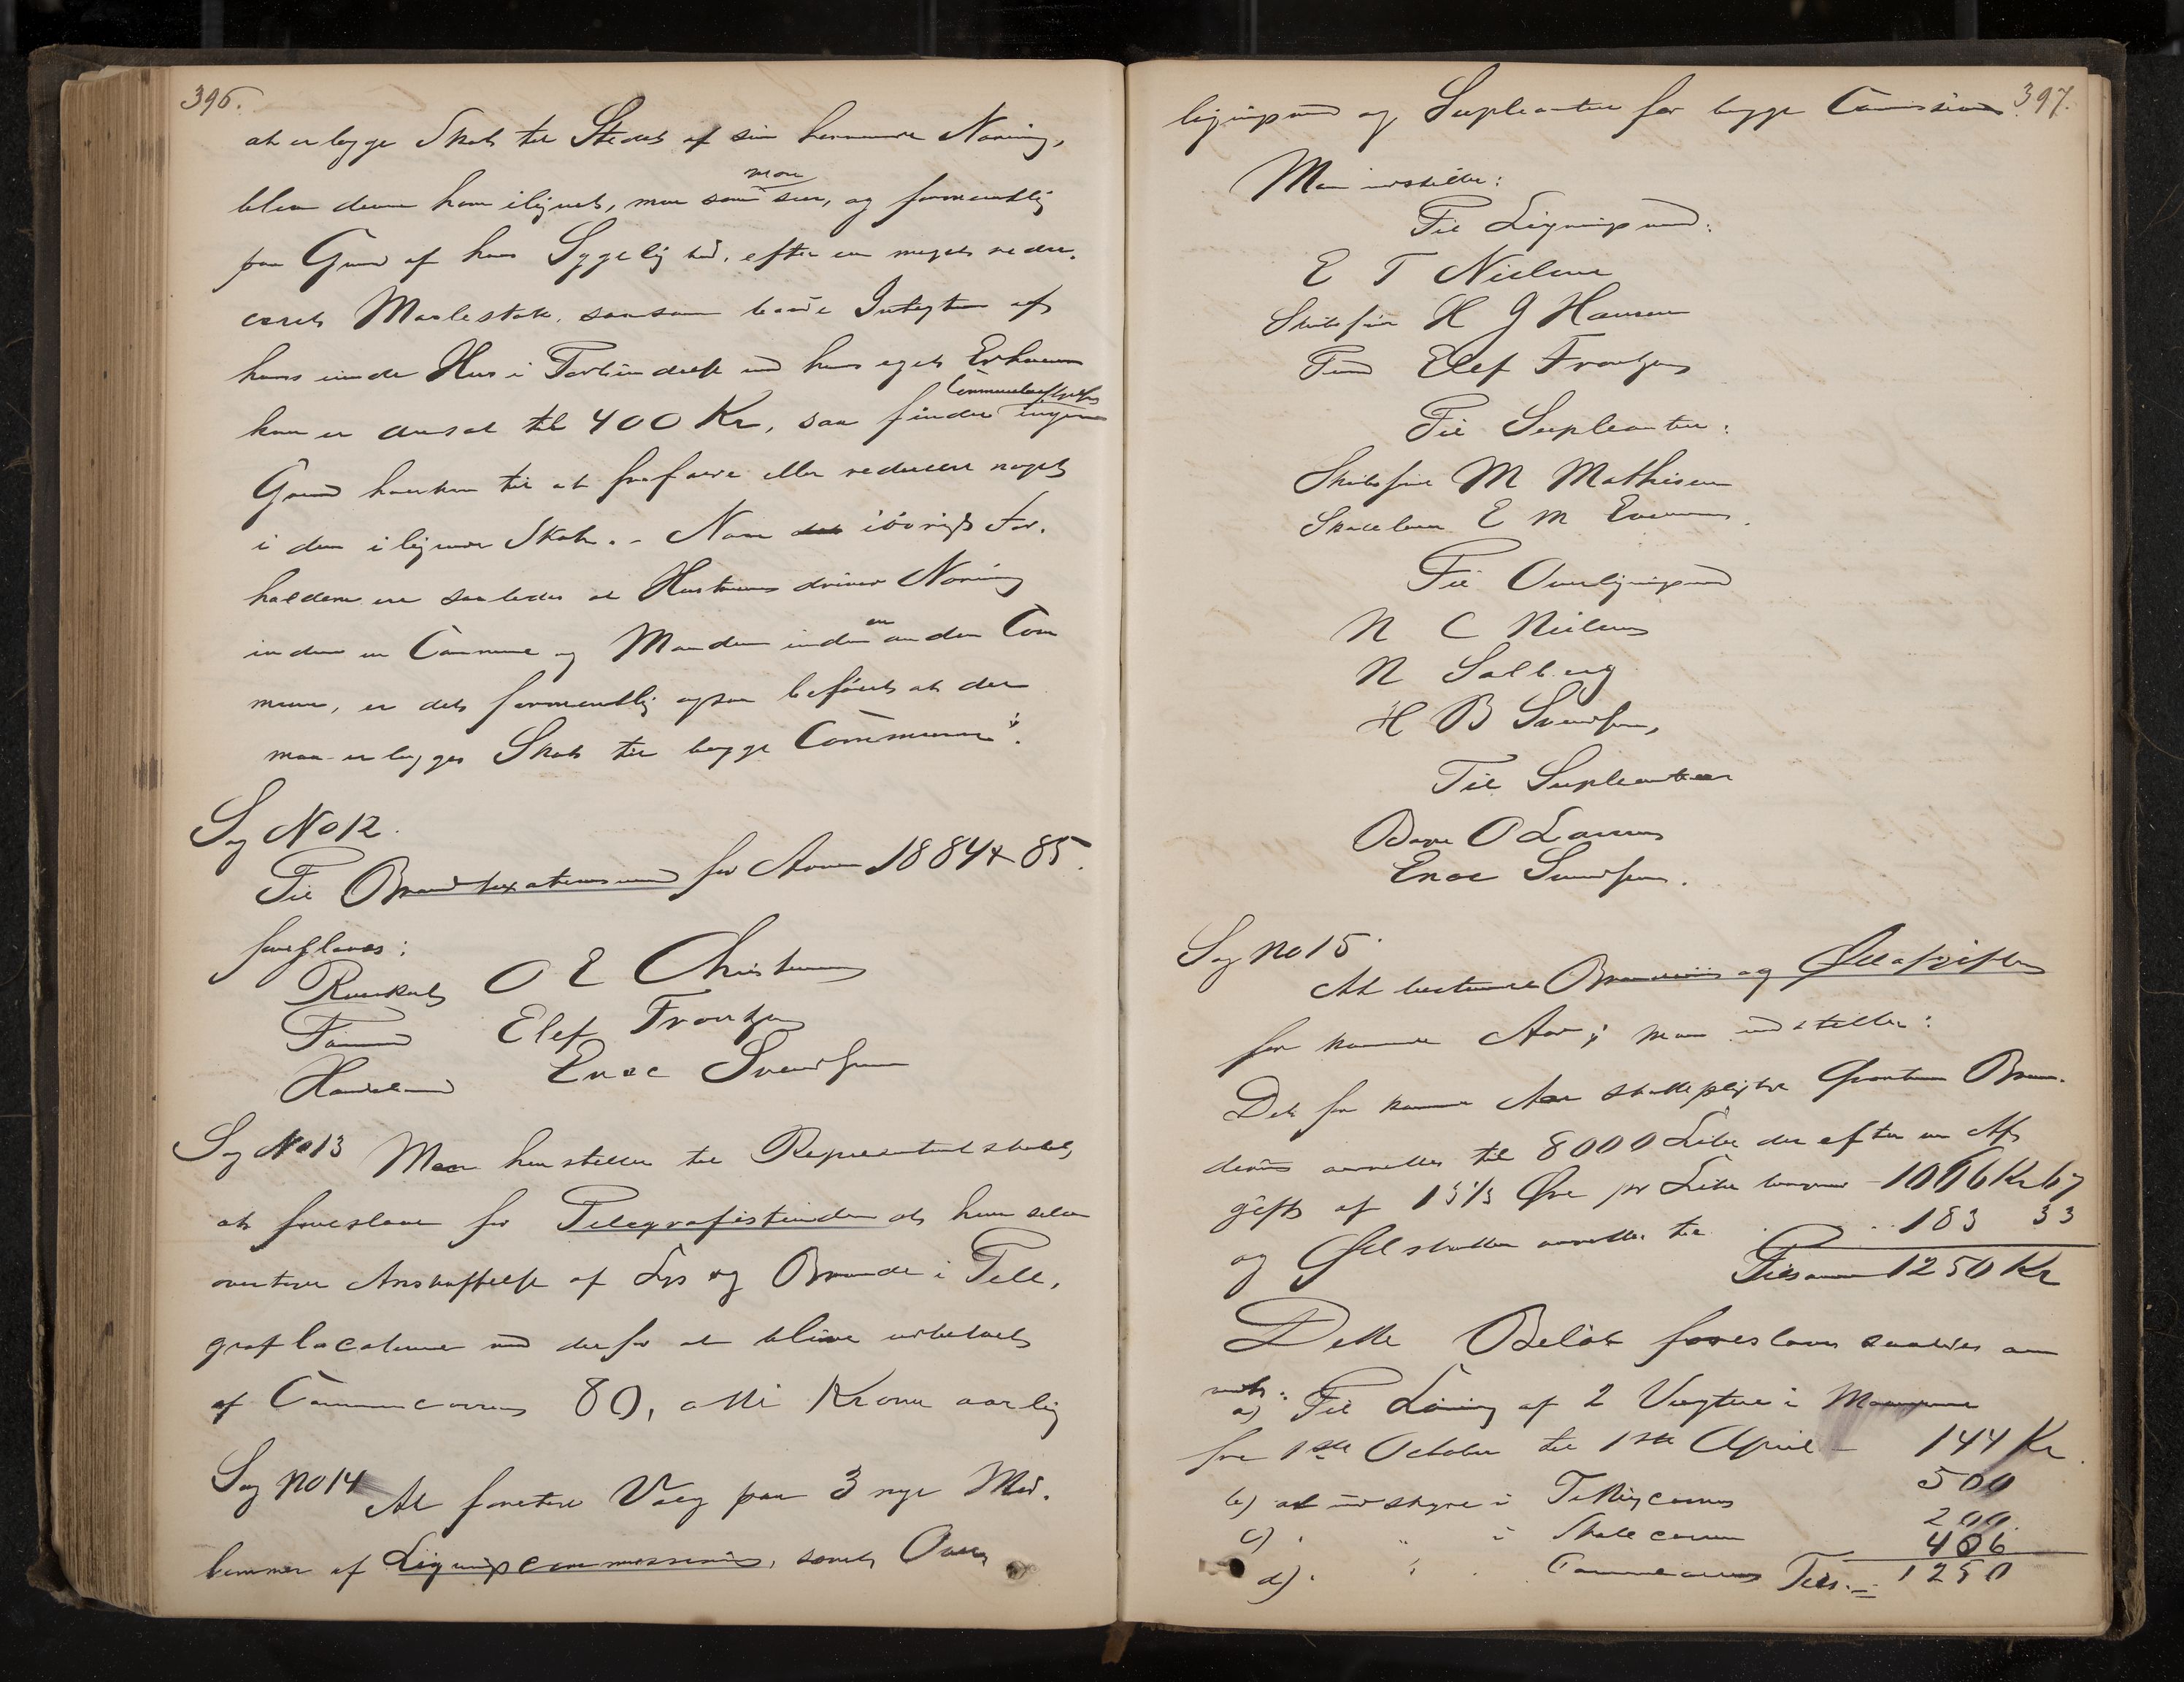 396.
at erlægge Skat til Stedet af sin herværende Næring,
blev denne ham ilignet, men som man ser, og formentlig
paa Grund af hans Sygelighed, efter en meget redu-
ceret Maalestok, saasom baade Indtægten af
hans Hus i og hans eget Erhverv
kun er ansat til 400 Kr, saa finder Communebestyrelsen ingen
Grund hverken til at frafalde eller reducere noget
i den ilignede Skat. - Naar iøvrigt For-
holdene er saaledes at Hustruen driver Næring
inden en Commune og Manden inden en anden Com
mune, er det formentlig ogsaa beføiet at der
maa erlægges Skat til begge Communer".
Sag No 12.
Til Brandtaxationsmænd for Aarene 1884 & 85.
foreslaaes:
O E Christensen
Elef Frantzen
Enoc Svendsen
Sag No 13 Man henstiller til Repræsentantskabet
at foreslaae for Telegrafistinden at hun selv
overtager Anskaffelse af Lys og Brænde i Tele,
graflocalerne mod derfor at blive udbetalt
af Communecassen 80, otti Kroner aarlig
Sag No 14 At foretage Valg paa 3 nye Med-
lemmer af Ligningscommissionen, samt Over
397.
ligningsmænd og Supleanter for begge Commissioner
Man indstiller:
Til Ligningsmænd:
E T Nielsen
Skibsfører H J Hansen
Elef Frantzen
Til Supleanter:
Skibsfører M Mathisen
E M Evensen
Til Overligningsmænd
N C Nielsen
N Salberg
H B Svendsen,
Til Supleanter
O Larsen
Enoc Svendsen.
Sag No 15.
At bestemme Brændeviins og Ølafgiften
for kommende Aar; man indstiller:
Det for kommende Aar skattepligtige Qvantum Brænde-
deviin ansættes til 8000 Liter der efter en Af
gift af 13 1/3 Øre pr Liter - 1066 Kr 67
og Ølskatten ansættes til . . . 183 33
Tilsammen 1250 Kr
Dette Beløb foreslaaes saaledes an
vendt:
a) Til Lønning af 2 Vægtere i
fra 1ste October til 1ste April - 144 Kr
b) at udskyde i 500
c) " " i Skolecassen 200.
d) " " Communecassen 406
Tils. = 1250